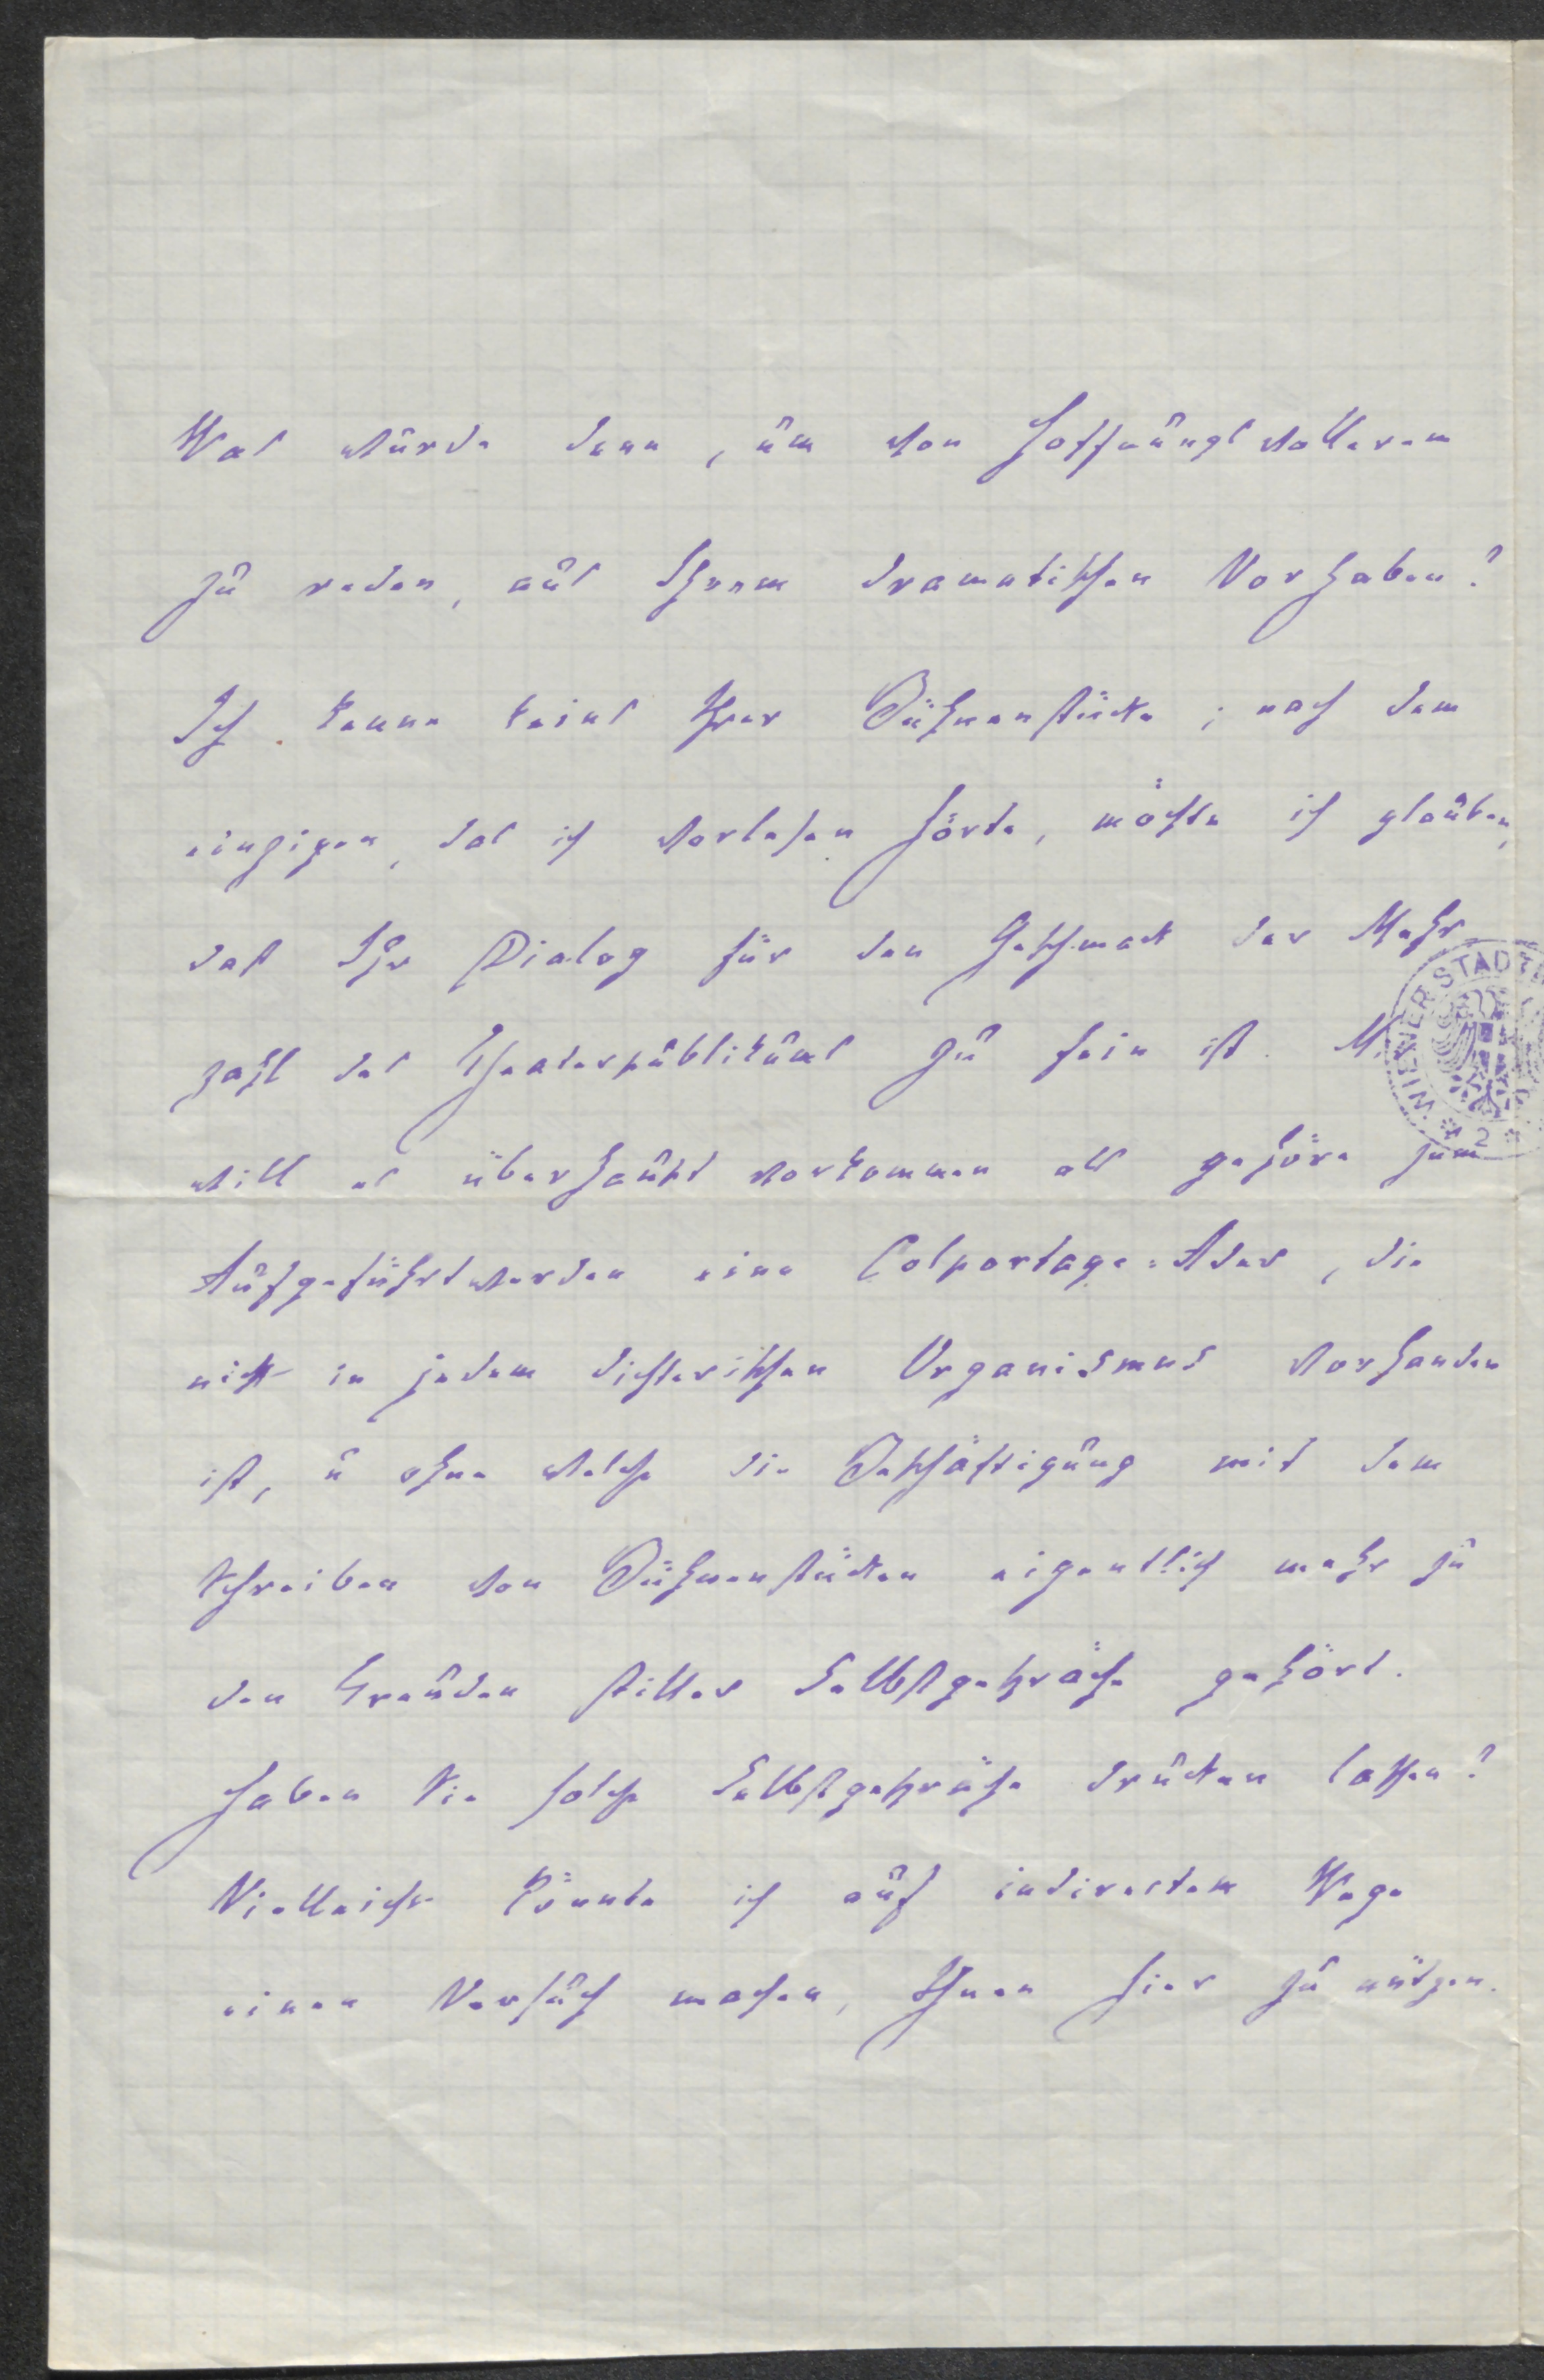 Was wurde denn, um von Hoffnungsvollerem
zu reden, aus Ihrem dramatischen Vorhaben?
Ich kenne keins Ihrer Bühnenstücke; nach dem
einzigen, das ich vorlesen hörte, möchte ich glauben,
daß Ihr Dialog für den Geschmack der Mehr-
zahl des Theaterpublikums zu fein ist. M
will es überhaupt vorkommen als gehöre zum
Aufgeführtwerden eine Colportage-Ader, die
nicht in jedem dichterischen Organismus vorhanden
ist, u ohne welche die Beschäftigung mit dem
Schreiben von Bühnenstücken eigentlich mehr zu
den Freuden stiller Selbstgespräche gehört.
Haben Sie solche Selbstgespräche drucken lassen?
Vielleicht könnte ich auf indirectem Wege
einen Versuch machen, Ihnen hier zu nützen.
WIENER STADT
2